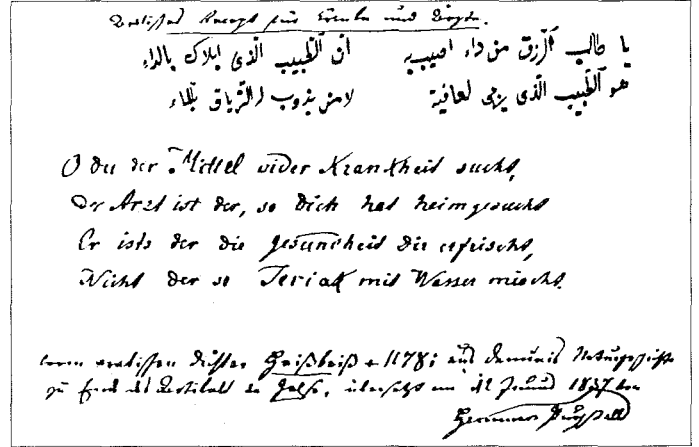 Arabisches Recept für Kranke und Aerzte.
يا طالب الرزق من داء اصيب به ان الطبيب الذى ابلاك بالداء
هو الطبيب الذى يرجى لعافية لا من يذوب الترياق بالماء
O du der Mittel wider Krankheit sucht,
Der Arzt ist der, so Dich hat heimgesucht
Er ists der die Gesundheit Dir erfrischt,
Nicht der so Teriak mit Wasser mischt.
vom arabischen Dichter Haißbaiß + 1178; aus Demiris Naturgeschichte
zu Ende des Artikels der übersetzt am Januar 1837 von
Hammer-Purgstall